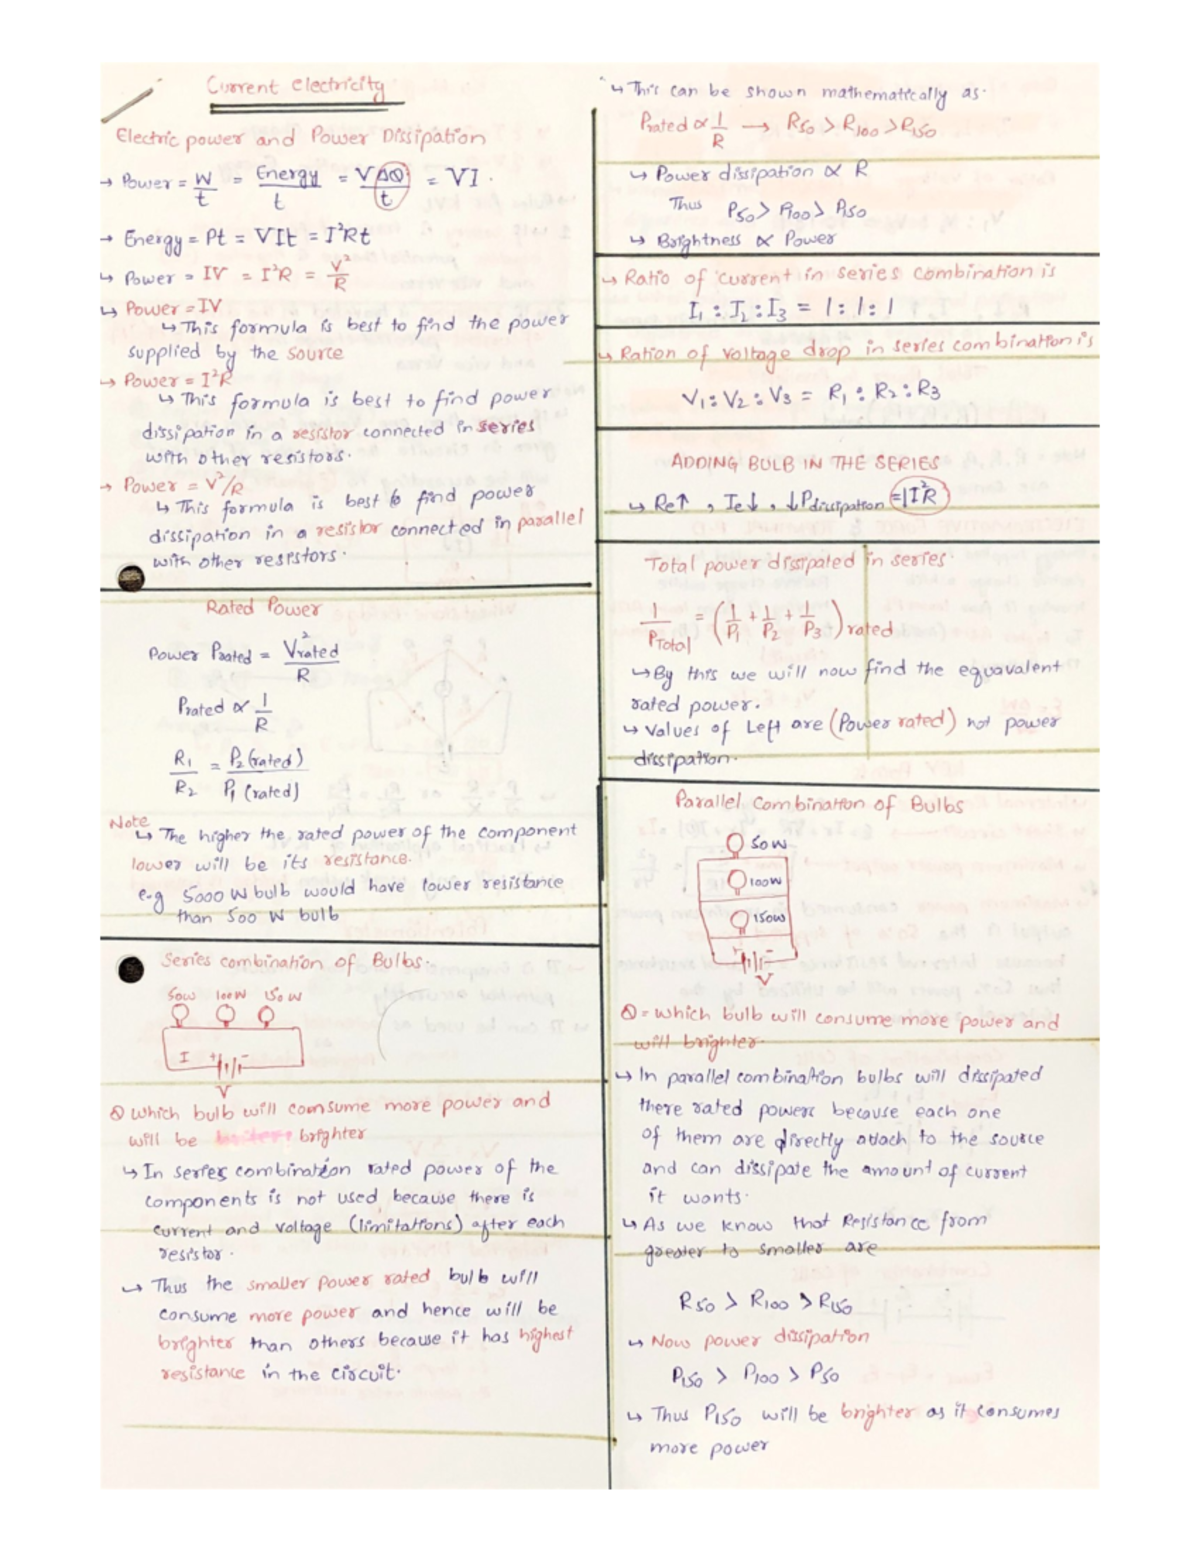 Current electricity
Electric power and Power Dissipation
→ Power = W/t = Energy/t = VΔQ/t = VI.
→ Energy = Pt = VIt = I²Rt
↳ Power = IV = I²R = V²/R
↳ Power = IV
↳ This formula is best to find the power
supplied by the source
→ Power = I²R
↳ This formula is best to find power
dissipation in a resistor connected in series
with other resistors.
→ Power = V²/R
↳ This formula is best to find power
dissipation in a resistor connected in parallel
with other resistors.
Rated Power
Power Prated = V²rated/R
Prated ∝ 1/R
R1/R2 = P2(rated)/P1(rated)
Note
↳ The higher the rated power of the component
lower will be its resistance.
e.g 5000 W bulb would have lower resistance
than 500 W bulb
Series combination of Bulbs.
50W 100W 150W
I + -
V
Q Which bulb will comsume more power and
will be brighter
↳ In series combination rated power of the
components is not used because there is
current and voltage (limitations) after each
resistor.
↳ Thus the smaller power rated bulb will
consume more power and hence will be
brighter than others because it has highest
resistance in the circuit.
↳ This can be shown mathematically as.
Prated ∝ 1/R → R50 > R100 > R150
↳ Power dissipation ∝ R
Thus P50 > P100 > P150
↳ Brightness ∝ Power
↳ Ratio of current in series combination is
I1 : I2 : I3 = 1 : 1 : 1
↳ Ration of voltage drop in series combination is
V1 : V2 : V3 = R1 : R2 : R3
ADDING BULB IN THE SERIES
↳ Re↑ , Ie↓ , ↓Pdissipation = I²R
Total power dissipated in series
1/PTotal = (1/P1 + 1/P2 + 1/P3) rated
↳ By this we will now find the equavalent
rated power.
↳ Values of Left are (Power rated) not power
dissipation.
Parallel combination of Bulbs
50W
100W
150W
+ -
V
Q = which bulb will consume more power and
will brighter.
↳ In parallel combination bulbs will dissipated
there rated power because each one
of them are directly attach to the source
and can dissipate the amount of current
it wants.
↳ As we know that Resistance from
greater to smaller are
R50 > R100 > R150
↳ Now power dissipation
P150 > P100 > P50
↳ Thus P150 will be brighter as it consumes
more power